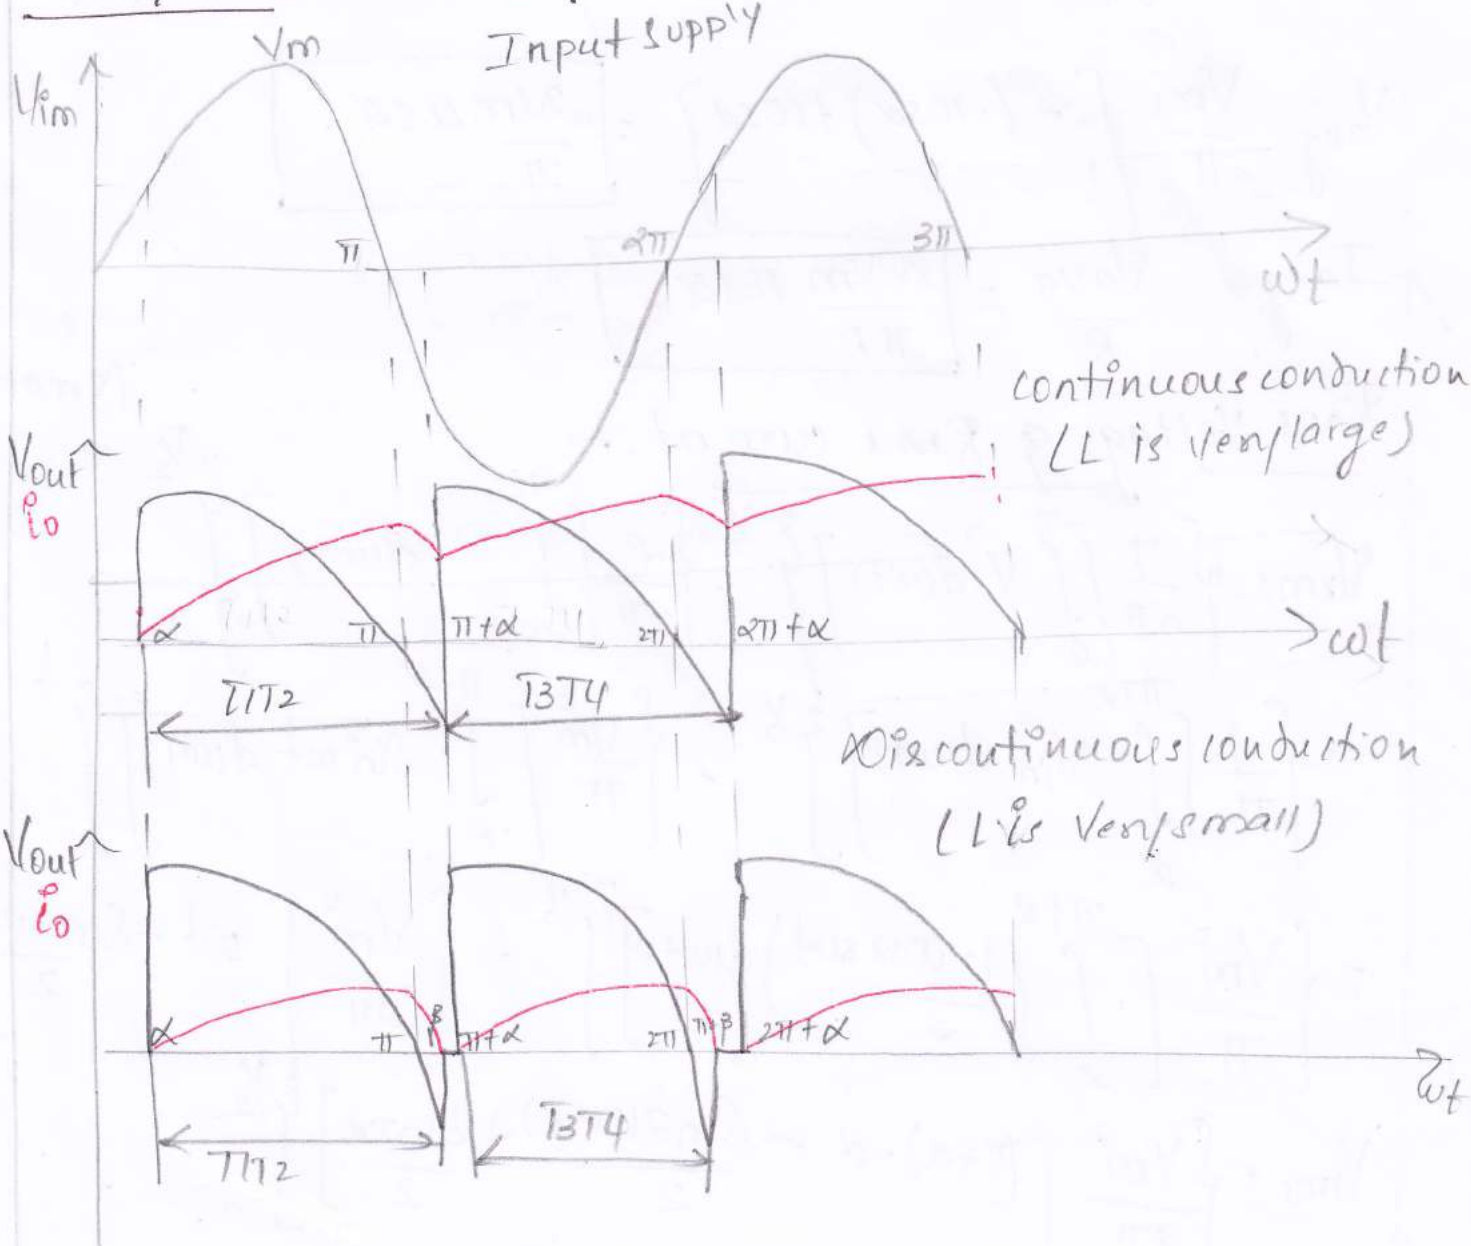 Vm
Input supply
Vim
π
2π
3π
ωt
continuous conduction
(L is very large)
Vout
io
α
π
π+α
2π
2π+α
ωt
T1T2
T3T4
Discontinuous conduction
(L is very small)
Vout
io
α
π
β
π+α
2π
π+β
2π+α
ωt
T1T2
T3T4